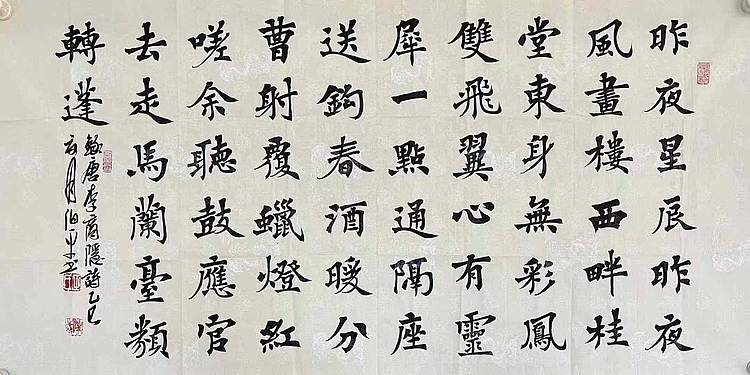 昨夜星辰昨夜
風畫樓西畔桂
堂東身無彩鳳
雙飛翼心有靈
犀一點通隔座
送鈎春酒暖分
曹射覆蠟燈紅
嗟余聽鼓應官
去走馬蘭臺類
轉蓬
錄唐李商隱詩乙巳
月伯平书